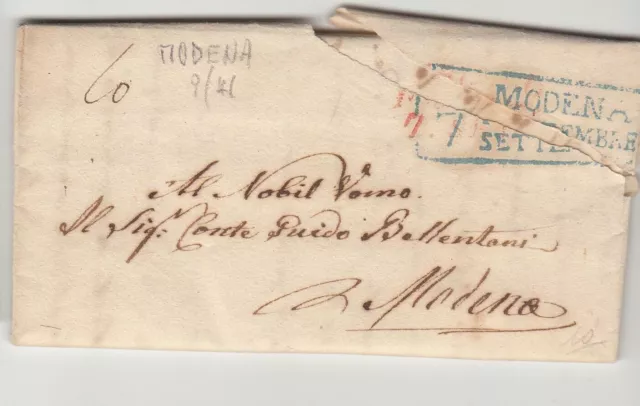 MODENA
60
MODENA
7
SETTEMBRE
7.
Al Nobil Uomo.
Il Sigr. Conte Guido Bellentani
Modena